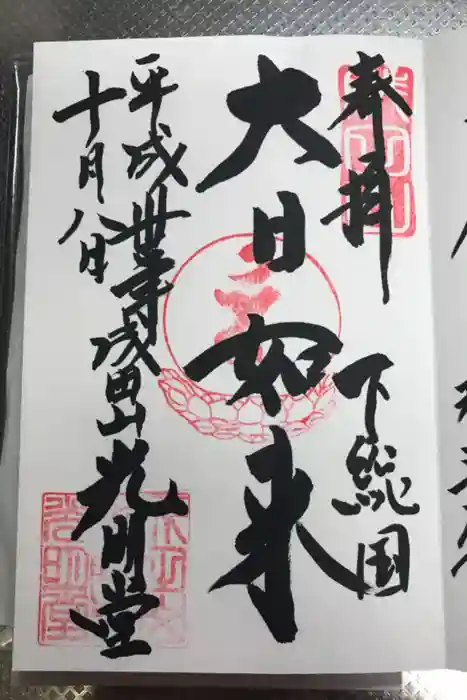 奉拝
下総国
大日如来
平成卅年成田山光明堂
十月八日